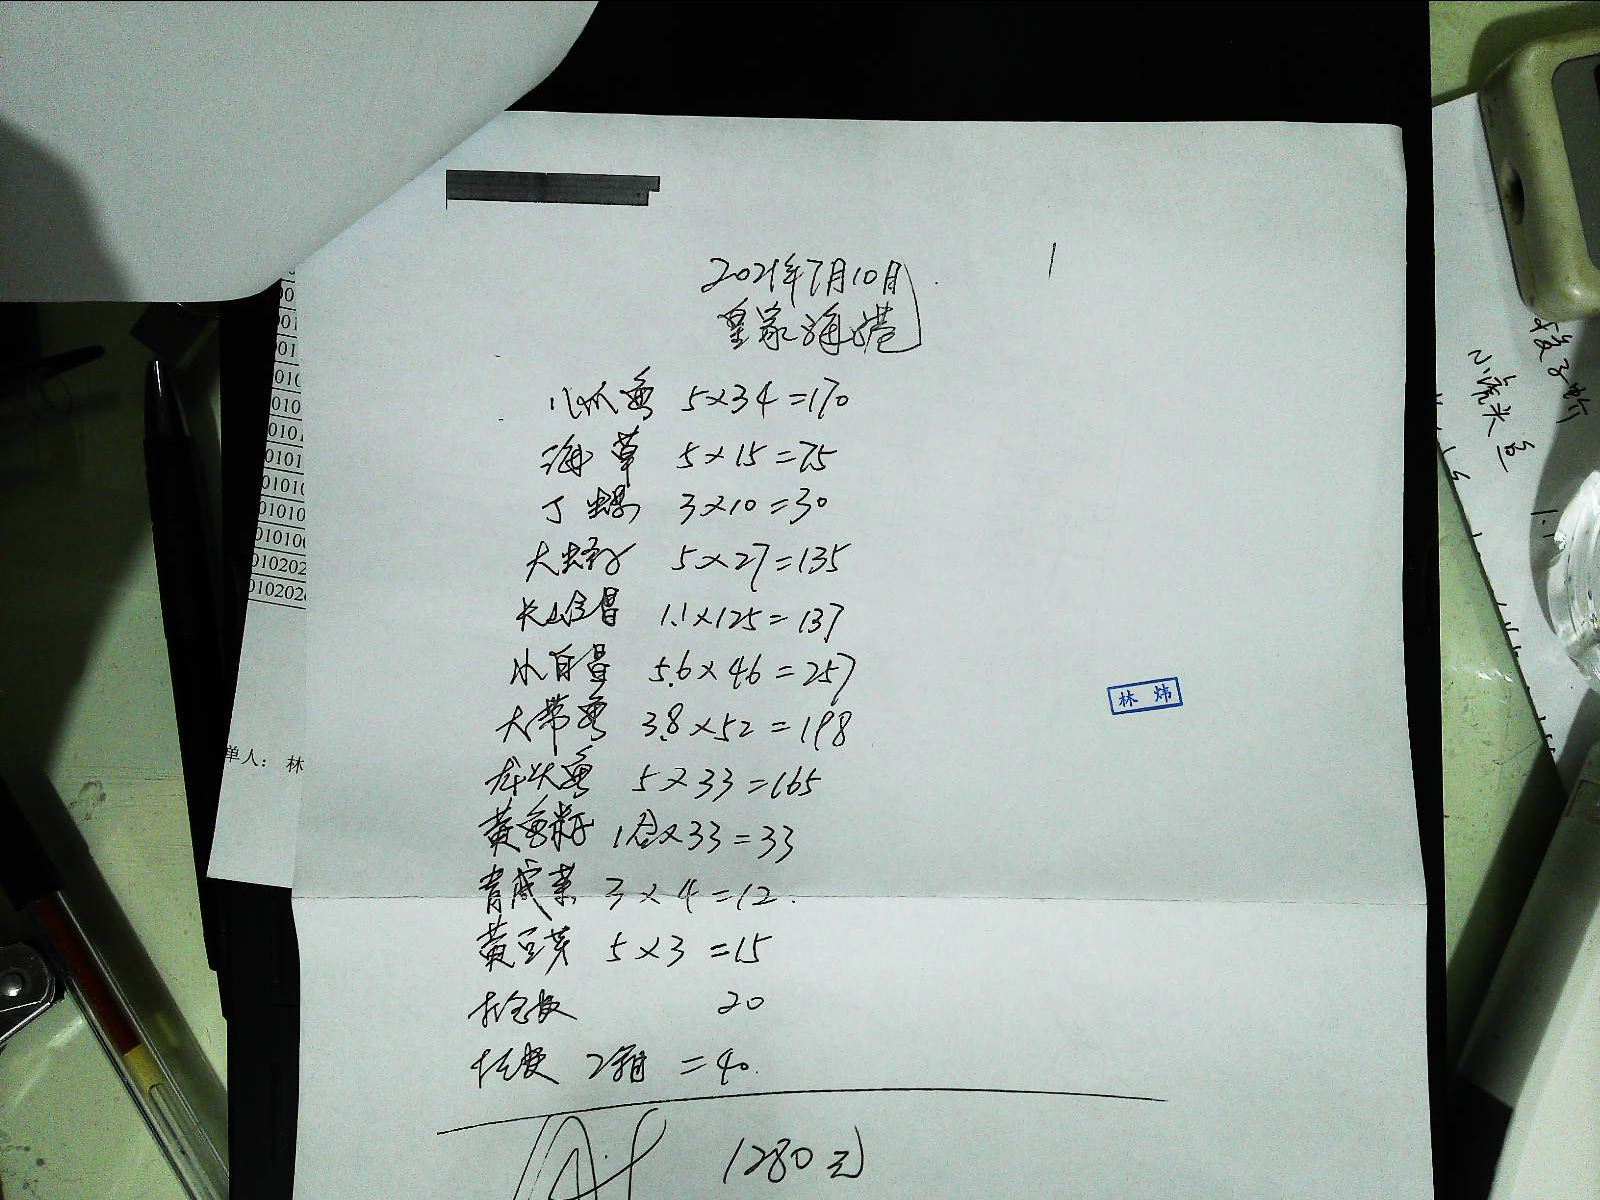 2021年7月10日
皇家海港
八爪鱼 5×34=170
海草 5×15=75
丁螺 3×10=30
大蛏子 5×27=135
1.1×125=137
5.6×46=257
大带鱼 3.8×52=198
龙头鱼 5×33=165
黄鱼籽 1盒×33=33
青咸菜 3×4=12.
黄豆芽 5×3=15
打包费 20
2箱=40.
1280元
林炜
单人: 林
00
001
001
0010
010
0101
0101
01010
01010
010100
0102020
0102020
小虎头鱼